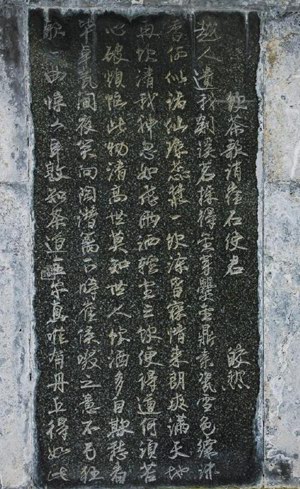 飲茶歌誚崔石使君 皎然
越人遺我剡溪茗採得金芽爨金鼎素瓷雪色縹沫
香何似諸仙瓊蕊漿一飲滌昏寐情來朗爽滿天地
再飲清我神忽如飛雨洒輕塵三飲便得道何須苦
心破煩惱此物清高世莫知世人飲酒多自欺愁看
畢卓瓮間夜笑向陶潛籬下時崔侯啜之意不已狂
歌一曲驚人耳孰知茶道全爾真唯有丹丘得如此